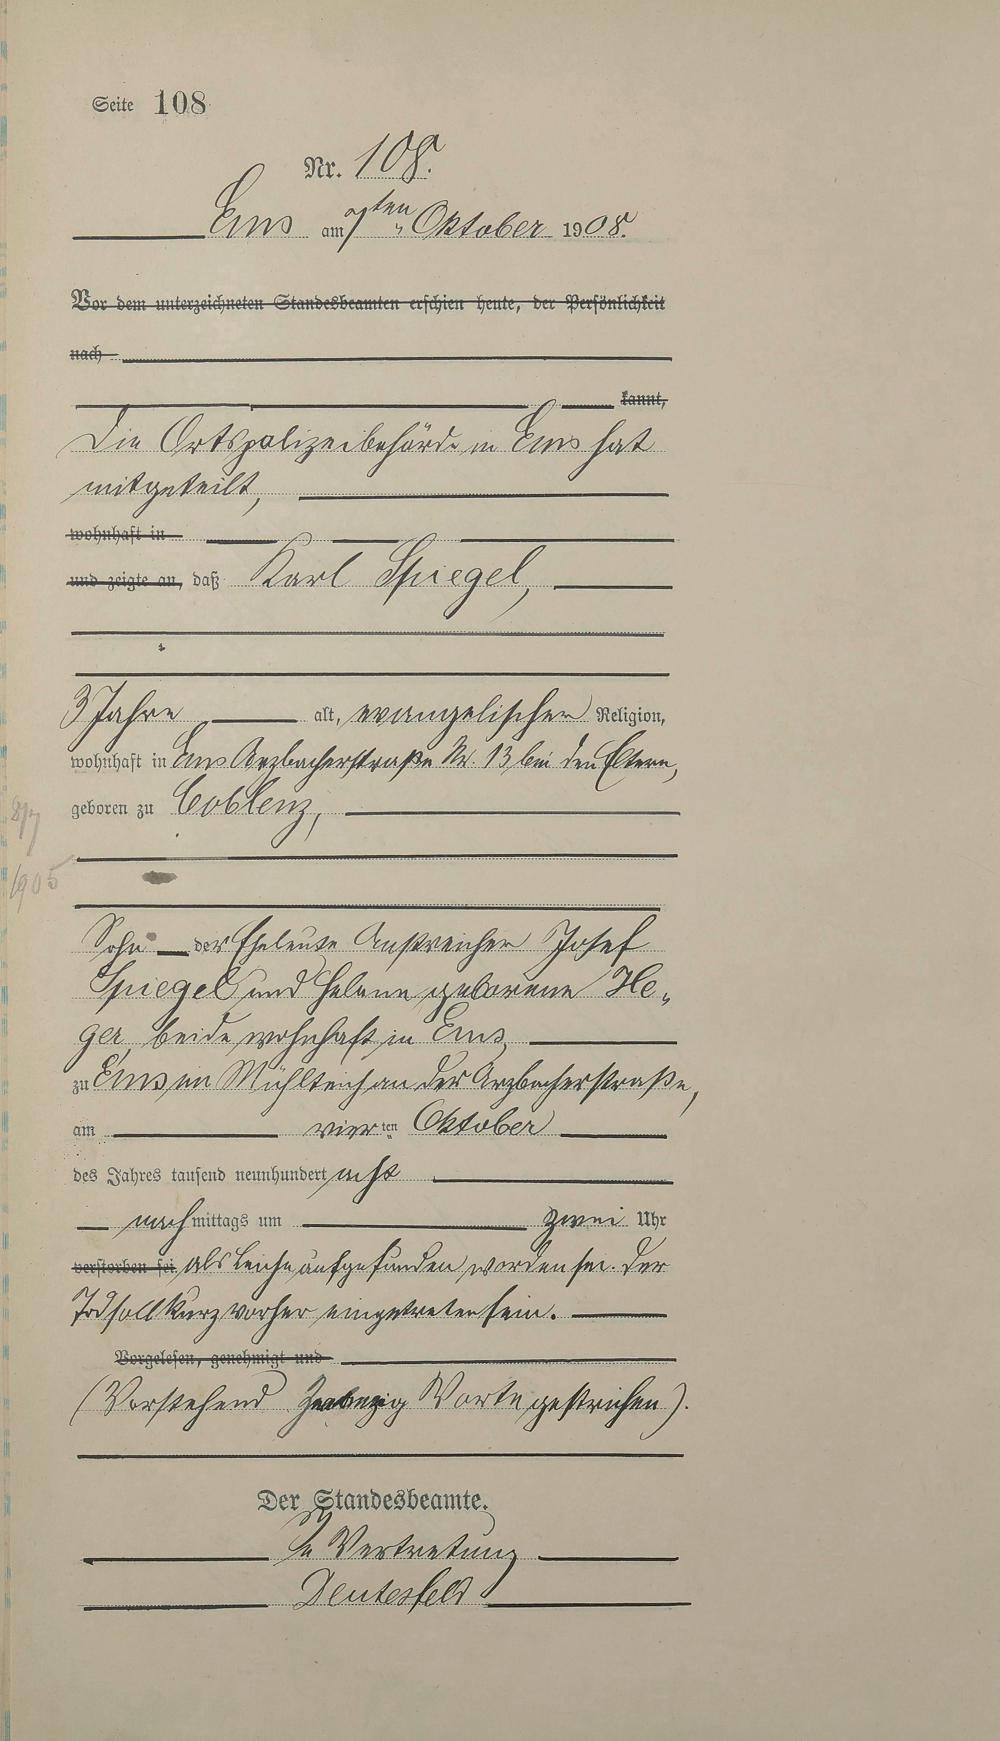 Seite 108
Nr. 108.
Ems am 7ten Oktober 1908.
Vor dem unterzeichneten Standesbeamten erschien heute, der Persönlichkeit
nach
kannt,
Die Ortspolizeibehörde in Ems hat
mitgeteilt,
wohnhaft in
und zeigte an, daß Karl Spiegel,
3 Jahre alt, evangelischer Religion,
wohnhaft in Ems Arzbacherstraße Nr. 13 bei den Eltern,
geboren zu Coblenz,
8/7
1905
Sohn der Eheleute Anstreicher Josef
Spiegel und Helene geborene He-
ger, beide wohnhaft in Ems,
zu Ems im Mühlteich an der Arzbacherstraße,
am vierten Oktober
des Jahres tausend neunhundert acht
nachmittags um zwei Uhr
verstorben sei als Leiche aufgefunden worden sei. Der
Tod soll kurz vorher eingetreten sein.
Vorgelesen, genehmigt und
(Vorstehend Worte gestrichen).
Der Standesbeamte.
In Vertretung